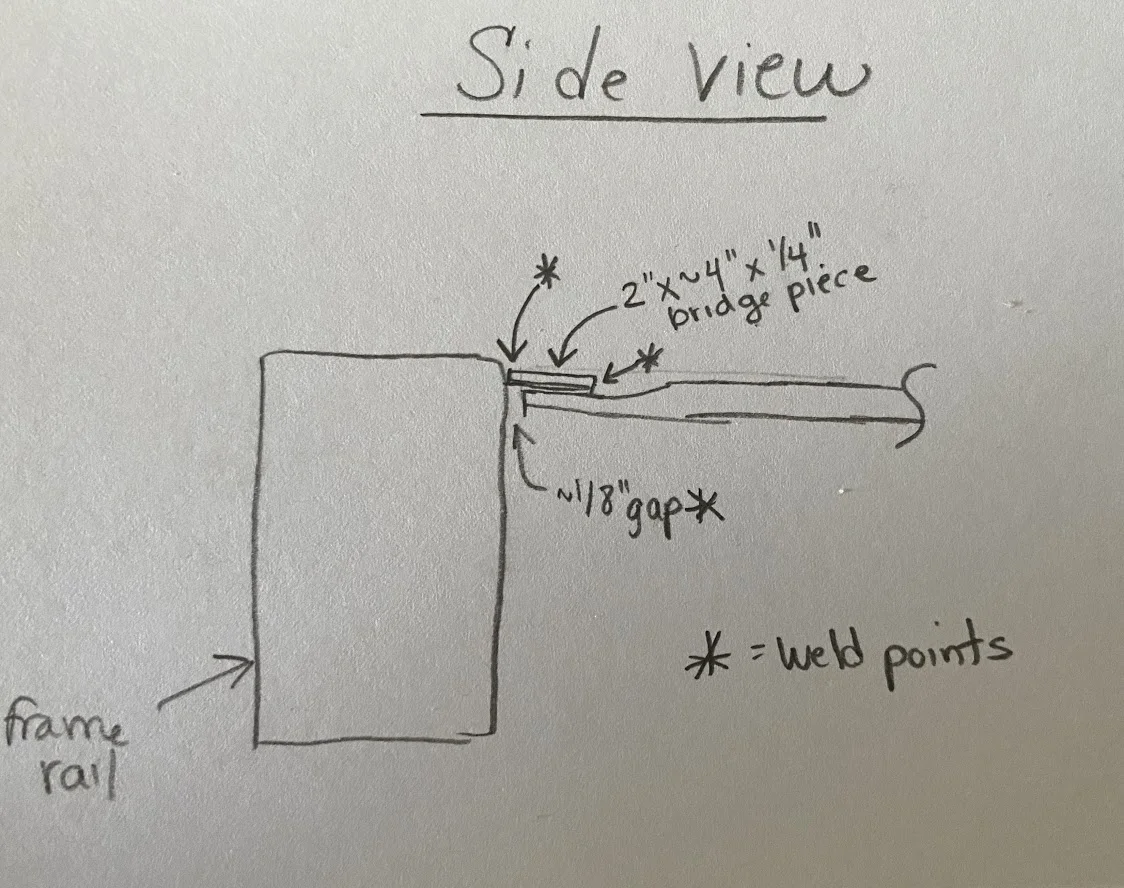 Side View
*
2"x~4"x 1/4"
bridge piece
*
~1/8" gap *
* = weld points
frame
rail